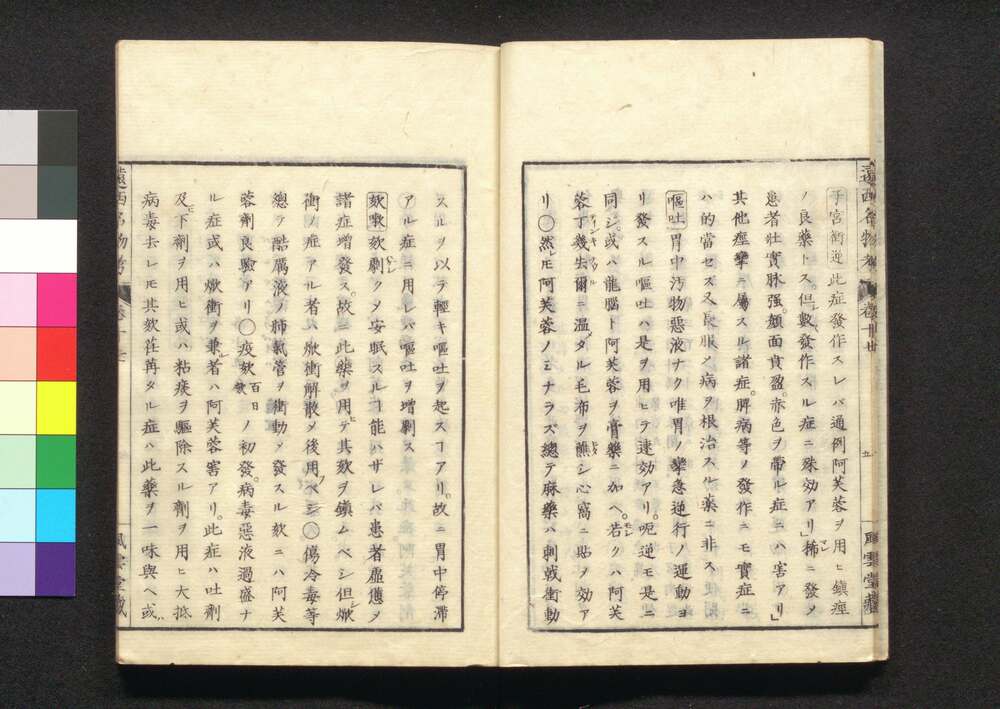 子宮衝逆此症發作スレバ通例阿芙蓉ヲ用ヒ鎮痙
ノ良藥トス。但シ數發作スル症ニ殊効アリ」稀ニ發メ
患者壮實脉强。顔面貪盈。赤色ヲ帶ル症ニハ害アリ」
其他痙攣ニ屬スル諸症。脾病等ノ發作ニモ實症ニ
ハ的當セズ又長服メ病ヲ根治スル藥ニ非ス
嘔吐胃中汚物惡液ナク唯胃ノ攣急逆行ノ運動ヨ
リ發スル嘔吐ハ是ヲ用ヒテ速効アリ。呃逆モ是ニ
同シ。或ハ龍腦ト阿芙蓉ヲ膏藥ニ加ヘ。若クハ阿芙
蓉丁幾失爾ニ温メタル毛布ヲ蘸シ心窩ニ貼メ効ア
リ○然レモ阿芙蓉ノミナラズ總テ麻藥ハ刺戟衝動
スルヲ以テ輕キ嘔吐ヲ起スコアリ。故ニ胃中停滞
アル症ニ用レバ嘔吐ヲ増劇ス
欬嗽欬劇クメ安眠スルコ能ハザレバ患者虛憊メ
諸症増發ス。故ニ此藥ヲ用ヒテ其欬ヲ鎮ムベシ但シ焮
衝ノ症アル者ハ焮衝解散メ後用ベシ○傷冷毒等
總テ酷厲液ノ肺氣管ヲ衝動メ發スル欬ニハ阿芙
蓉劑良驗アリ○疫欬百日欬ノ初發。病毒惡液過盛ナ
ル症或ハ焮衝ヲ兼者ハ阿芙蓉害アリ。此症ハ吐劑
及ヒ下劑ヲ用ヒ或ハ粘痰ヲ驅除スル劑ヲ用ヒ大抵
病毒去レモ其欬荏苒タル症ハ此藥ヲ一味與ヘ或ハ
遠西名物考
卷十廿
五
風雲堂藏